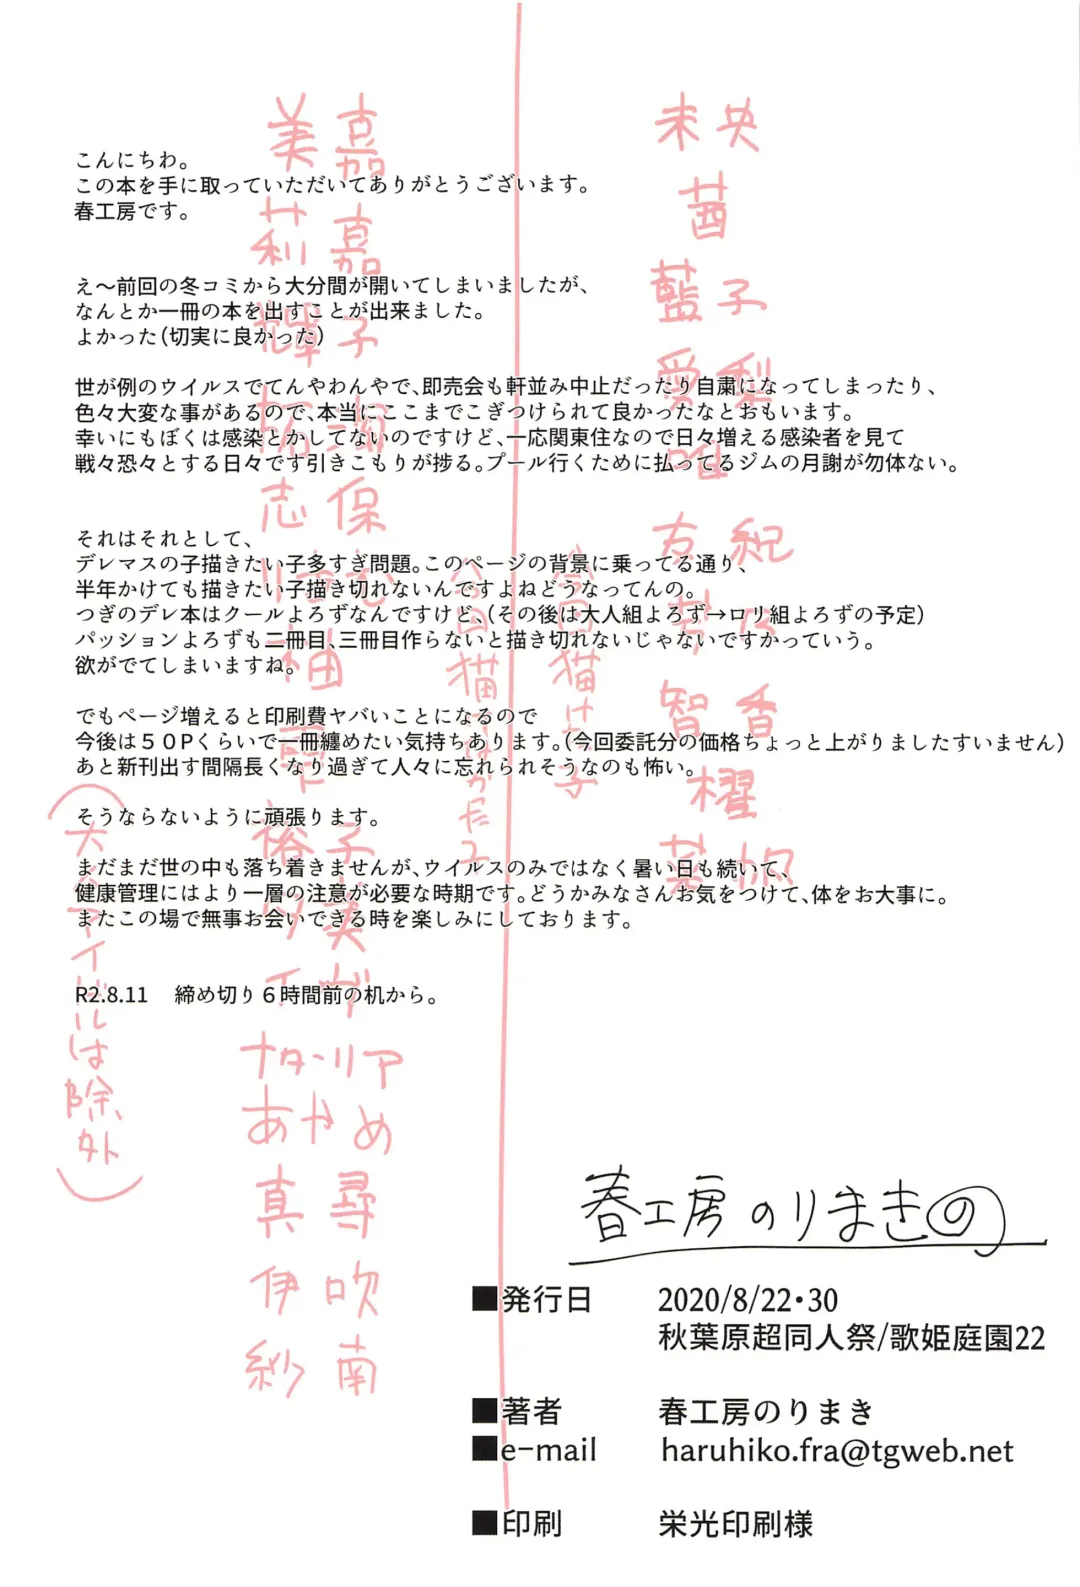 こんにちわ。
この本を手に取っていただいてありがとうございます。
春工房です。
え～前回の冬コミから大分間が開いてしまいましたが、
なんとか一冊の本を出すことが出来ました。
よかった(切実に良かった)
世が例のウイルスでてんやわんやで、即売会も軒並み中止だったり自粛になってしまったり、
色々大変な事があるので、本当にここまでこぎつけられて良かったなとおもいます。
幸いにもぼくは感染とかしてないのですけど、一応関東住なので日々増える感染者を見て
戦々恐々とする日々です引きこもりが捗る。プール行くために払ってるジムの月謝が勿体ない。
それはそれとして、
デレマスの子描きたい子多すぎ問題。このページの背景に乗ってる通り、
半年かけても描きたい子描き切れないんですよねどうなってんの。
つぎのデレ本はクールよろずなんですけど、(その後は大人組よろず→ロリ組よろずの予定)
パッションよろずも二冊目、三冊目作らないと描き切れないじゃないですかっていう。
欲がでてしまいますね。
でもページ増えると印刷費ヤバいことになるので
今後は５０Pくらいで一冊纏めたい気持ちあります。(今回委託分の価格ちょっと上がりましたすいません)
あと新刊出す間隔長くなり過ぎて人々に忘れられそうなのも怖い。
そうならないように頑張ります。
まだまだ世の中も落ち着きませんが、ウイルスのみではなく暑い日も続いて、
健康管理にはより一層の注意が必要な時期です。どうかみなさんお気をつけて、体をお大事に。
またこの場で無事お会いできる時を楽しみにしております。
R2.8.11　締め切り６時間前の机から。
未央
茜
藍子
愛梨
唯
友紀
芳乃
智香
櫂
葉加
今回描けた子
今回描けなかった子
美嘉
莉嘉
輝子
拓海
志保
りあむ
裕子
ナターリア
あやめ
真尋
伊吹
紗南
(大人アイドルは除外)
春工房のりまき
■発行日　2020/8/22・30
秋葉原超同人祭/歌姫庭園22
■著者　春工房のりまき
■e-mail　haruhiko.fra@tgweb.net
■印刷　栄光印刷様